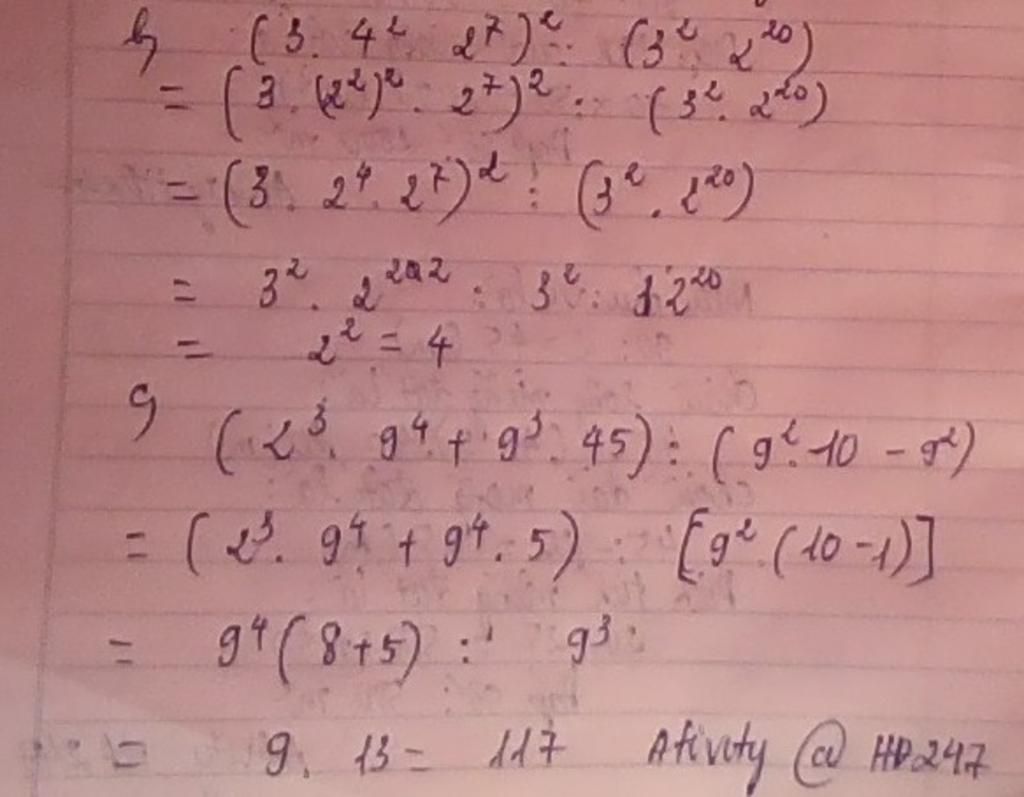 b, (3. 4² 2⁷)² : (3² 2²⁰)
= (3 . (2²)² . 2⁷)² : (3² . 2²⁰)
= (3 . 2⁴ . 2⁷)² : (3² . 2²⁰)
= 3² . 2²² : 3² : 2²⁰
= 2² = 4
c, (2³ . 9⁴ + 9³ . 45) : (9² . 10 - 9²)
= (2³ . 9⁴ + 9⁴ . 5) : [9² . (10 - 1)]
= 9⁴ (8 + 5) : 9³
= 9 . 13 = 117 Ativity @ HD247